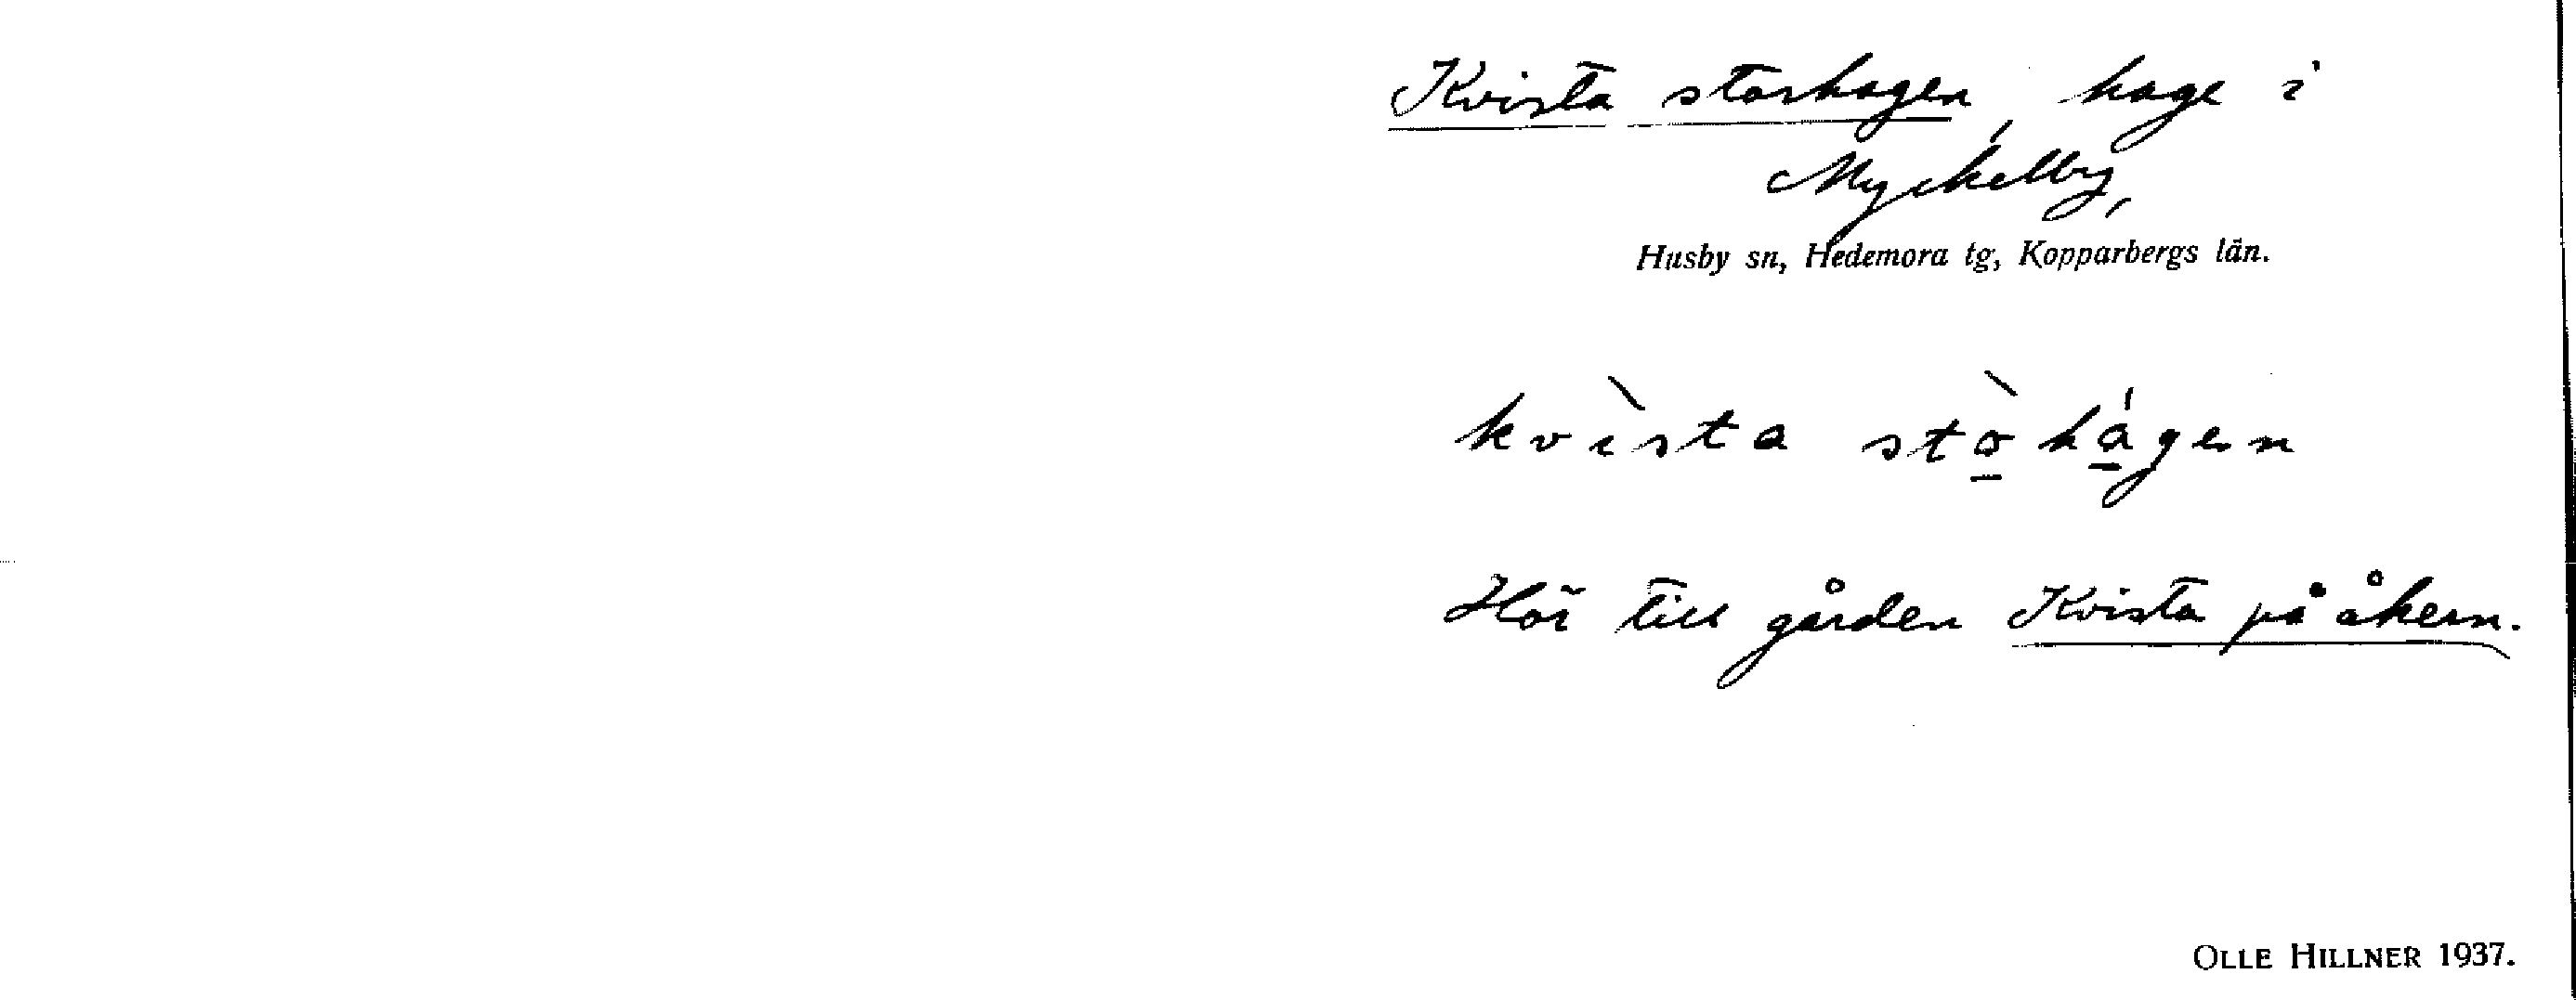 Kvista storhagen, hage i
Myckelby,
Husby sn, Hedemora tg, Kopparbergs län.
kvìsta stò̱há̱gen
Hör till gården Kvista på åkern.
OLLE HILLNER 1937.